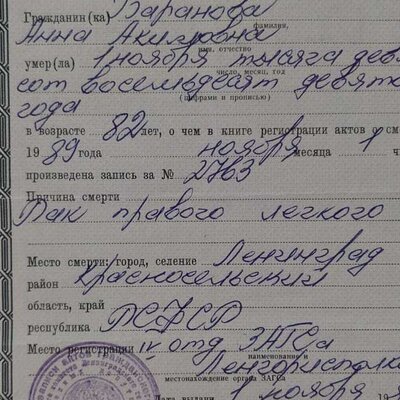 Гражданин(ка) Баранова
фамилия,
Анна Акимовна
имя, отчество
умер(ла) 1 ноября тысяча девя
число, месяц, год
сот восемьдесят девято
(цифрами и прописью)
года
в возрасте 82 лет, о чем в книге регистрации актов о см
19 89 года ноября месяца 1 ч
произведена запись за № 2763
Причина смерти
Рак правого легкого
Место смерти: город, селение Ленинград
район Красносельский
область, край
республика РСФСР
Место регистрации IV отд ЗАГСа
наименование и
Ленгорисполк
местонахождение органа ЗАГСа
Дата выдачи 1 ноября 19